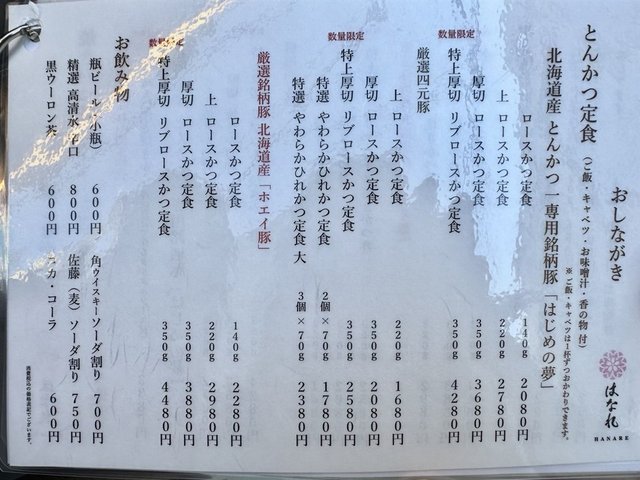 おしながき
はなれ
HANARE
とんかつ定食（ご飯・キャベツ・お味噌汁・香の物 付）
※ご飯・キャベツは1杯ずつおかわりできます。
北海道産 とんかつ専用銘柄豚「はじめの夢」
ロースかつ定食 140g 2080円
上 ロースかつ定食 220g 2780円
厚切 ロースかつ定食 350g 3680円
数量限定
特上厚切 リブロースかつ定食 350g 4280円
厳選四元豚
上 ロースかつ定食 220g 1680円
厚切 ロースかつ定食 350g 2080円
数量限定
特上厚切 リブロースかつ定食 350g 2580円
特選 やわらかひれかつ定食 2個×70g 1780円
特選 やわらかひれかつ定食 大 3個×70g 2380円
厳選銘柄豚 北海道産「ホエイ豚」
ロースかつ定食 140g 2280円
上 ロースかつ定食 220g 2980円
厚切 ロースかつ定食 350g 3880円
数量限定
特上厚切 リブロースかつ定食 350g 4480円
お飲み物
瓶ビール（小瓶） 600円 角ウイスキーソーダ割り 700円
精選 高清水 辛口 800円 佐藤（麦）ソーダ割り 750円
黒ウーロン茶 600円 コカ・コーラ 600円
消費税込の価格表記でございます。